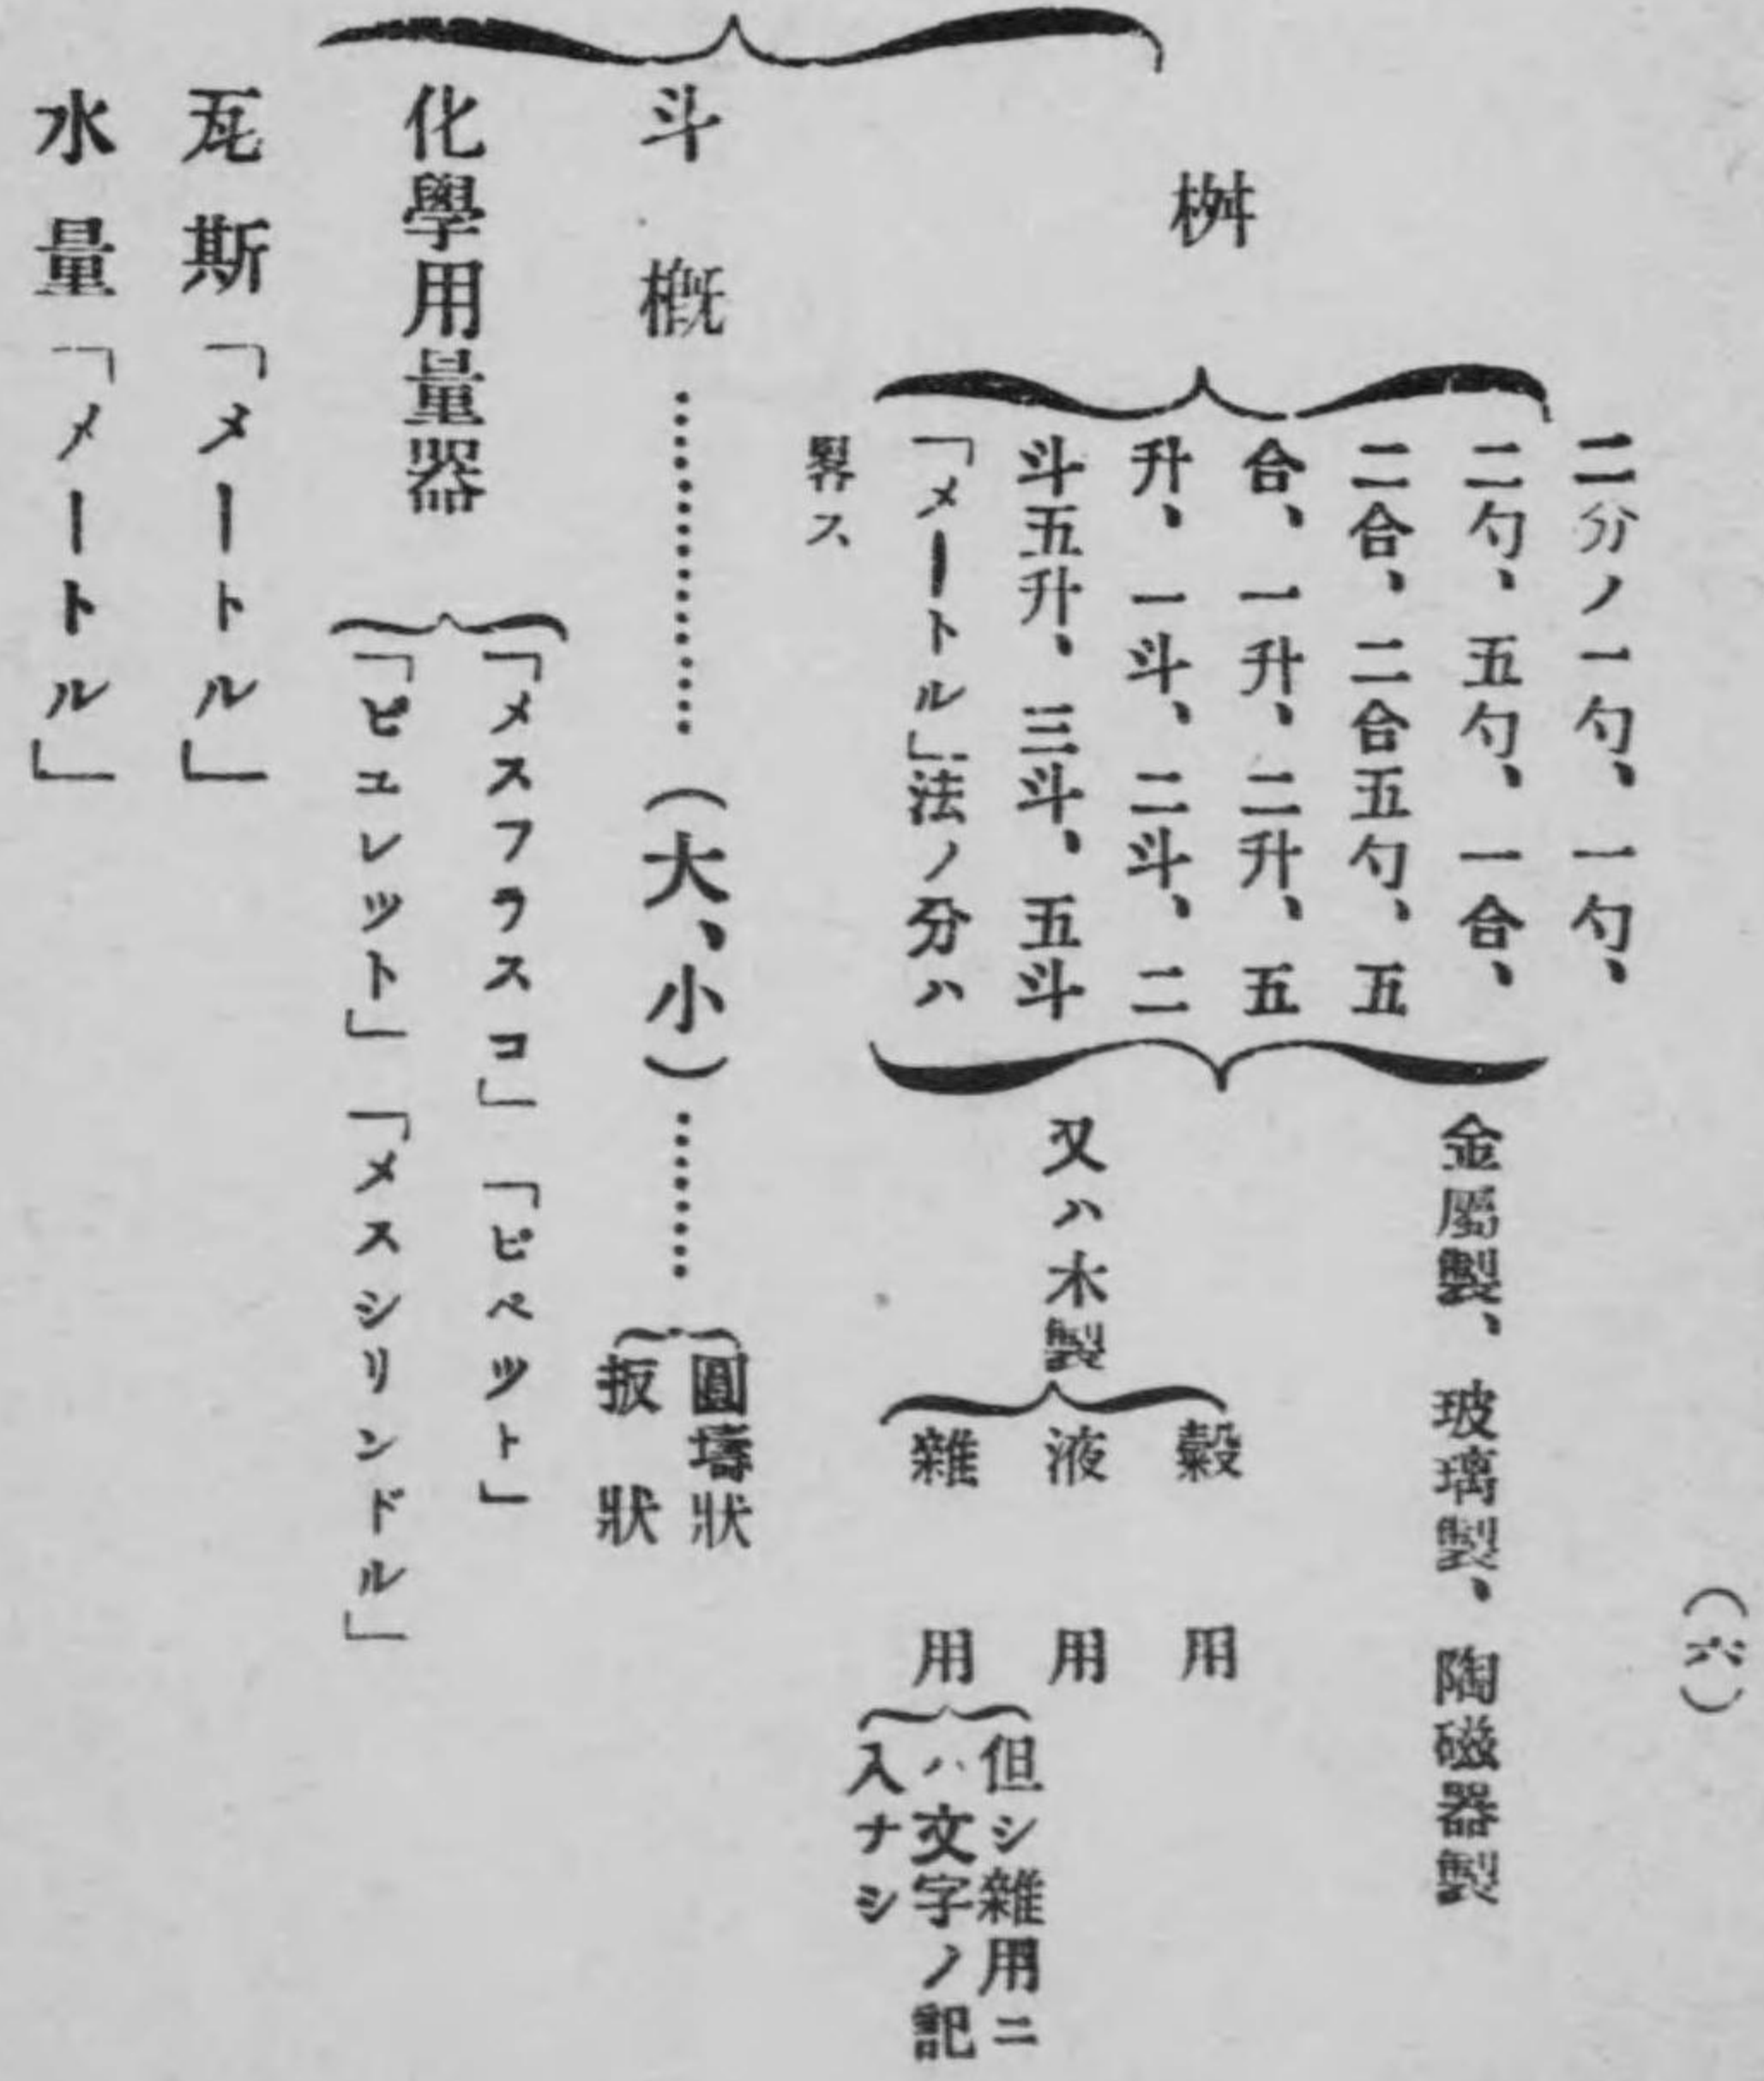 （六）
桝
二分ノ一勺、一勺、
二勺、五勺、一合、
二合、二合五勺、五
合、一升、二升、五
升、一斗、二斗、二
斗五升、三斗、五斗
「メートル」法ノ分ハ
畧ス
金屬製、玻璃製、陶磁器製
又ハ木製
穀用
液用
雜用
但シ雜用ニ
ハ文字ノ記
入ナシ
斗概……………（大、小）………
圓壔狀
扳狀
化學用量器
「メスフラスコ」「ピペット」
「ビュレット」「メスシリンドル」
瓦斯「メートル」
水量「メートル」